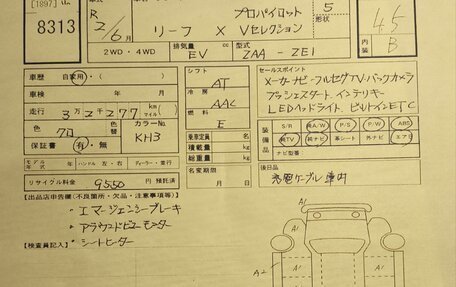 [1897]
8313
R 2/6月
リーフ X プロパイロット Vセレクション
5 形状
45
内装 B
2WD・4WD 排気量 EV 型式 ZAA - ZE1
車歴 自家用・
車検 年 月 日
走行 3万2千277 km マイル
色 クロ 色替 カラーNo. KH3
保証書 有・無
モデル年式 年 ハンドル 左・右 ディーラー・並行
リサイクル料金 9550 円 預託済
シフト AT
冷房 AAC
燃料 E
乗車定員 名
積載量 kg
総重量 kg
名変期限 月 日
セールスポイント
メーカーナビ・フルセグTV・バックカメラ
プッシュスタート インテリキー
LEDヘッドライト ビルトインETC
装備品 S/R 純A/W P/S P/W ABS
純TV 純ナビ 革シート 外ナビ エアB
ナビ型番
後日品
充電ケーブル 車内
【出品店申告欄(不良箇所・欠品・注意事項等)】
・エマージェンシーブレーキ
・アラウンドビューモニター
・シートヒーター
【検査員記入】
A1
A1
A2
A1
A1